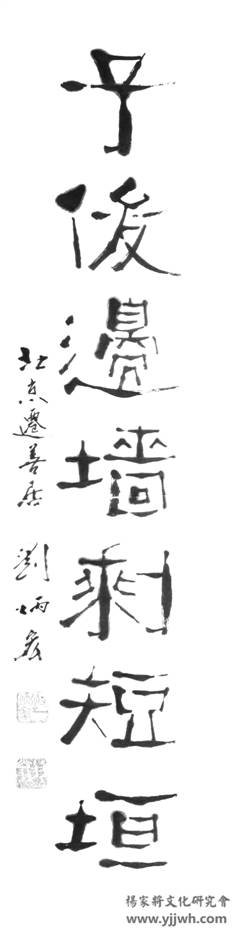 子後邊墻剩短垣
北京遷善居 劉炳
楊家將文化研究會
www.yjjwh.com